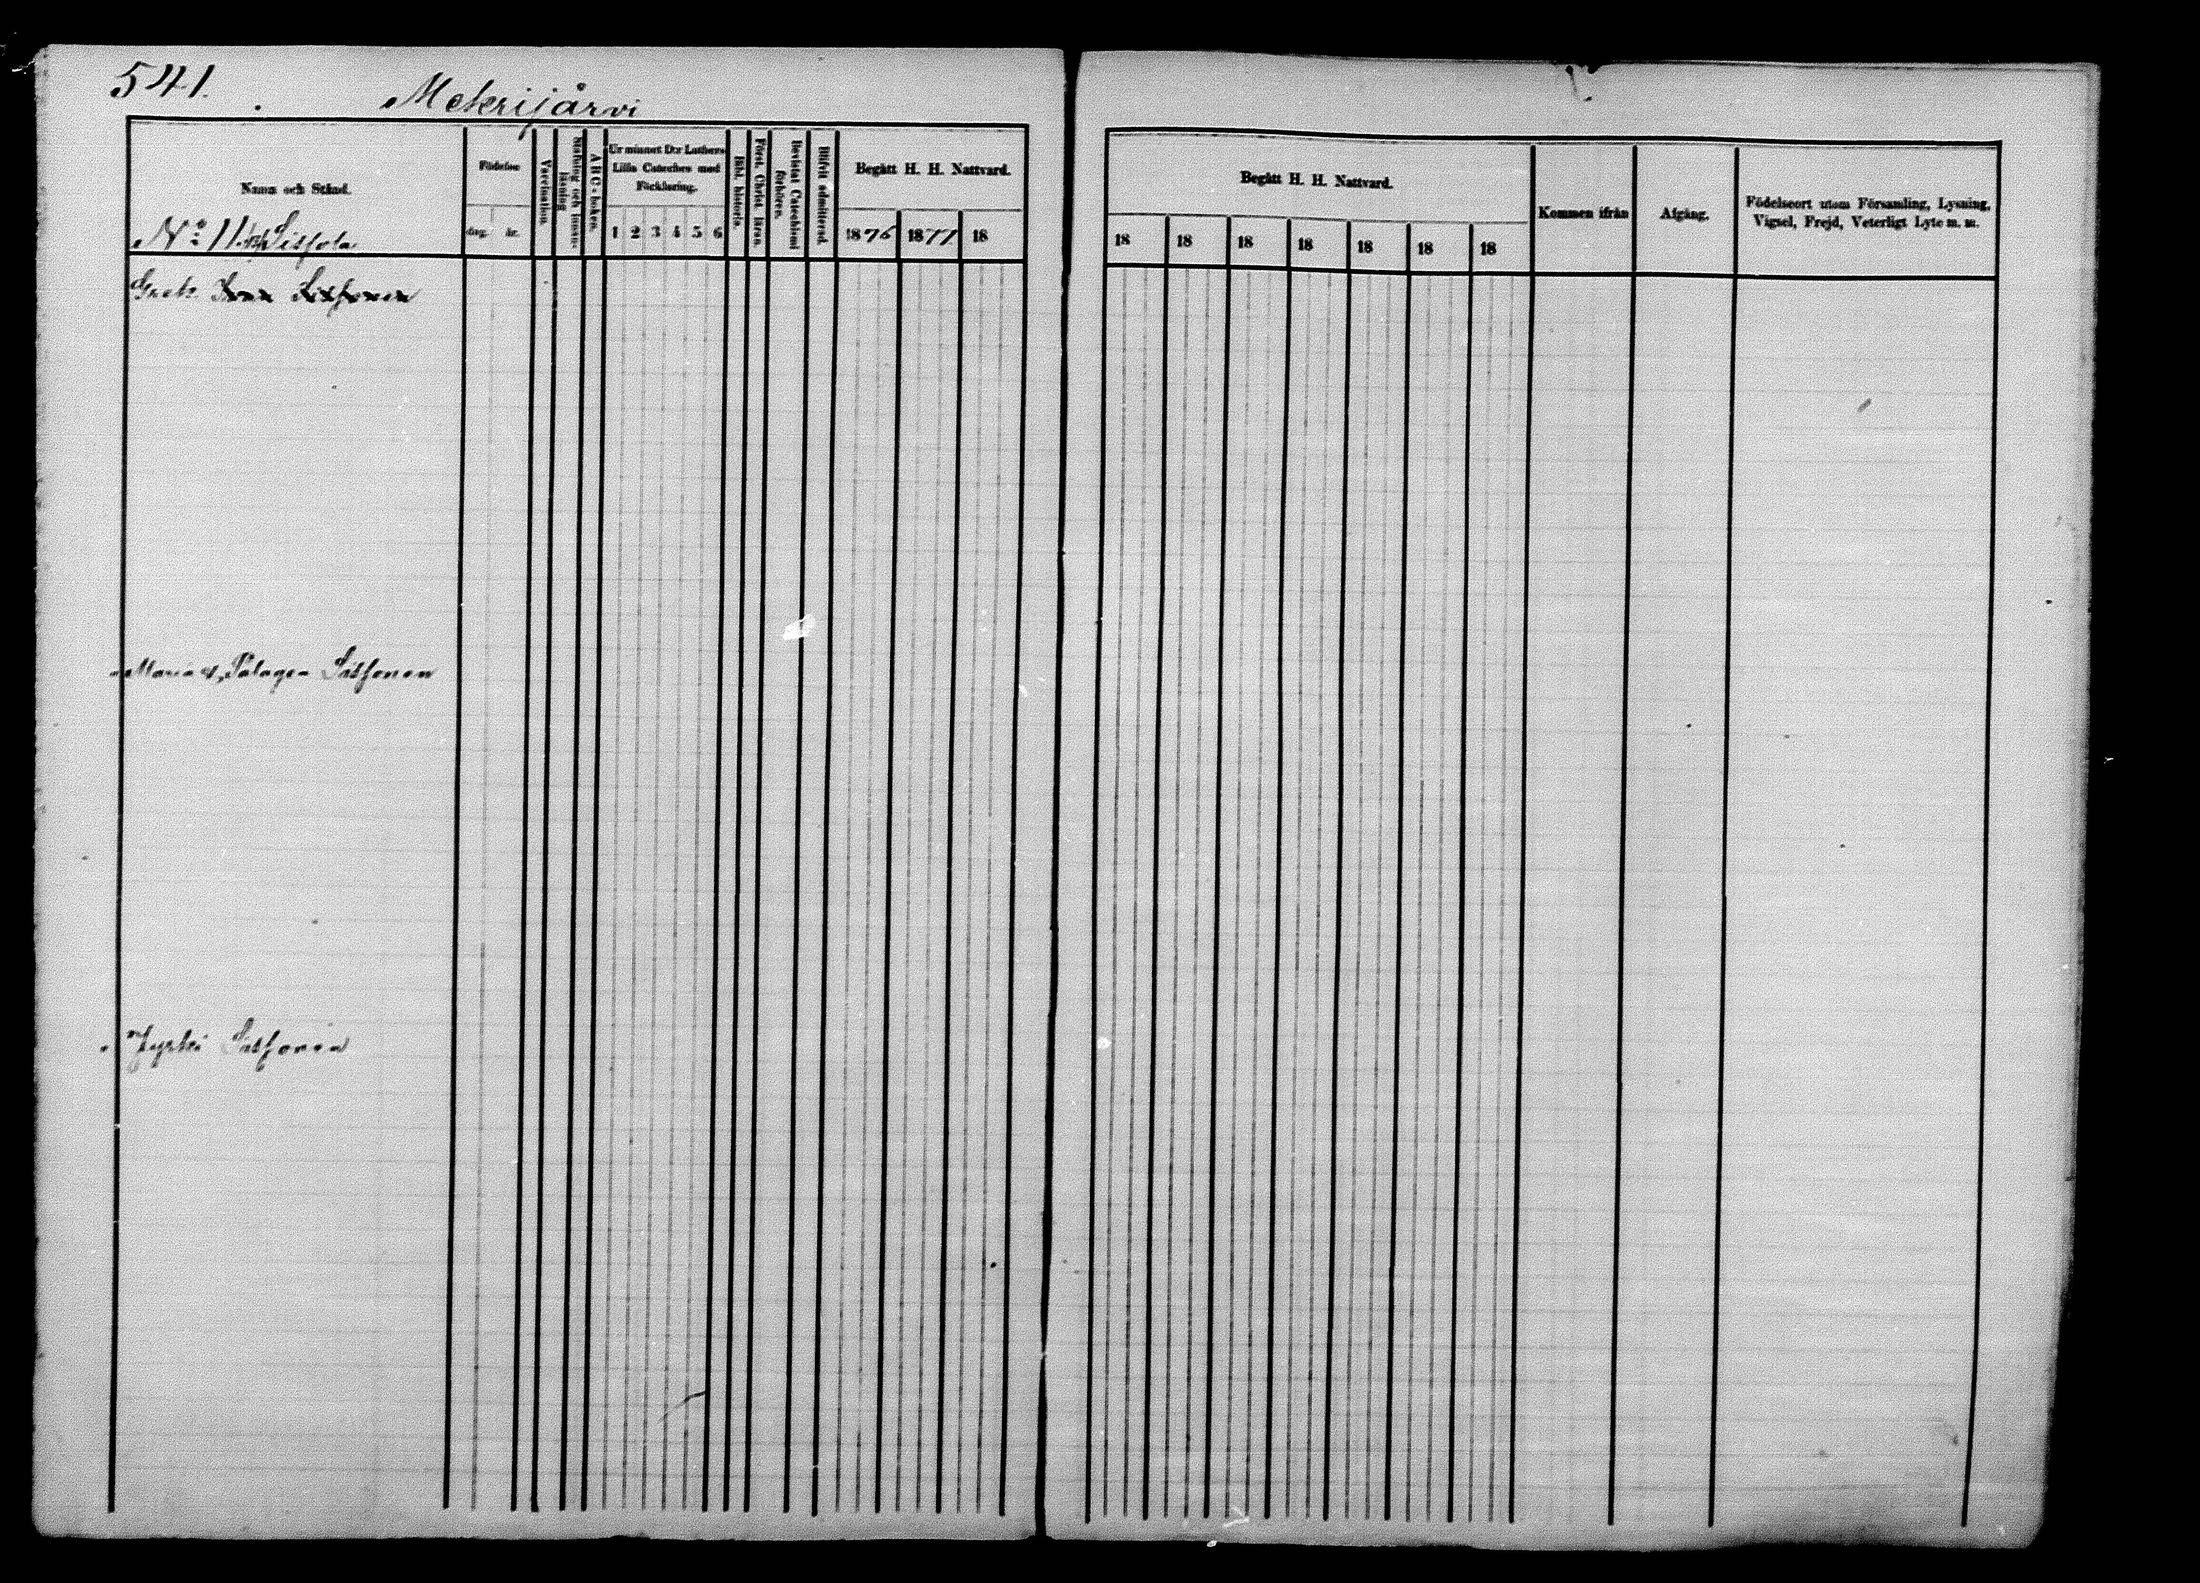 541.
Mekrijärvi
Namn och Stånd.
Födelse
dag. år.
Vaccination.
Stafning och innanläsning
ABC-boken.
Ur minnet D:r Luthers
Lilla Cateches med
Förklaring.
1 2 3 4 5 6
Bibl. historia.
Först. Christ. läran.
Bevistat Catechismi
förhören.
Blifvit admitterad.
Begått H. H. Nattvard.
1876 1877 18
Begått H. H. Nattvard.
18 18 18 18 18 18 18
Kommen ifrån
Afgång.
Födelseort utom Församling, Lysning,
Vigsel, Frejd, Veterligt Lyte m. m.
No 11 Sissola
Grek. Ivan Sissonen
Maria Palagea Sissonen
Jyrki Sissonen